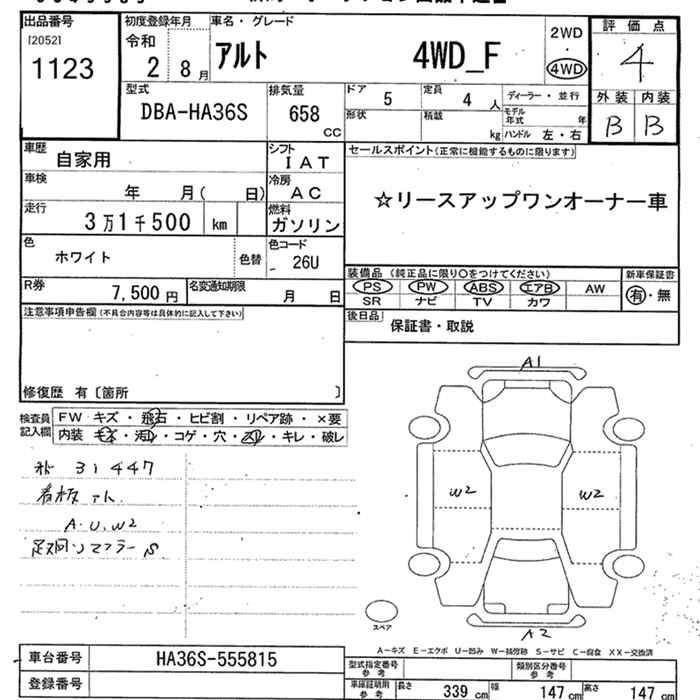 出品番号
[2052]
1123
初度登録年月
令和
2 8月
車名・グレード
アルト 4WD_F
2WD
・
4WD
評価点
4
外装 内装
B B
型式
DBA-HA36S
排気量
658
CC
ドア
5
定員
4 人
ディーラー・並行
形状
積載
kg
モデル年式 年
ハンドル 左・右
車歴
自家用
シフト
IAT
車検
年 月( 日)
冷房
AC
走行
3万1千500 km
燃料
ガソリン
色
ホワイト
色替
色コード
26U
R券
7,500円
名変通知期限
月 日
セールスポイント(正常に機能するものに限ります)
☆リースアップワンオーナー車
装備品 (純正品に限り○をつけてください)
新車保証書
PS PW ABS エアB AW
有・無
SR ナビ TV カワ
後日品
保証書・取説
注意事項申告欄(不具合内容等は具体的に記入して下さい)
修復歴 有〔箇所 〕
検査員
記入欄
FW キズ・飛石・ヒビ割・リペア跡・×要
内装 キズ・汚れ・コゲ・穴・スレ・キレ・破レ
31447
看板
A.U.W2
足廻り マフラー S
A1
W2
W2
A2
スペア
A-キズ E-エクボ U-凹み W-補修跡 S-サビ C-腐食 XX-交換済
車台番号
HA36S-555815
登録番号
型式指定番号
参考
類別区分番号
参考
車庫証明用
参考
長さ 339 cm
幅 147 cm
高さ 147 cm